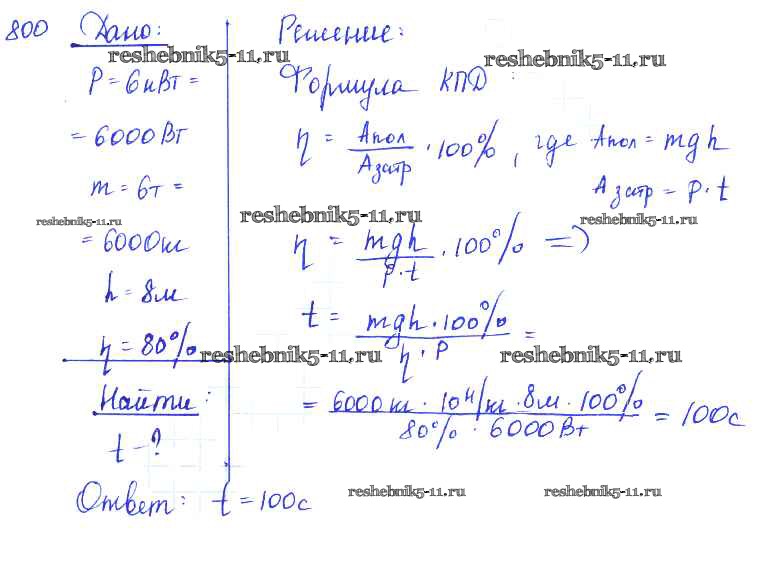 800 Дано:
reshebnik5-11.ru
P = 6кВт =
= 6000 Вт
m = 6т =
reshebnik5-11.ru
= 6000кг
h = 8м
η = 80%
Найти:
t - ?
Решение:
reshebnik5-11.ru
Формула КПД:
η = Aпол / Aзатр · 100%, где Aпол = mgh
Aзатр = P·t
reshebnik5-11.ru
reshebnik5-11.ru
η = mgh / P·t · 100% =>
t = mgh·100% / η·P =
reshebnik5-11.ru
reshebnik5-11.ru
= 6000кг · 10Н/кг · 8м · 100% / 80% · 6000Вт = 100с
Ответ: t = 100с
reshebnik5-11.ru
reshebnik5-11.ru